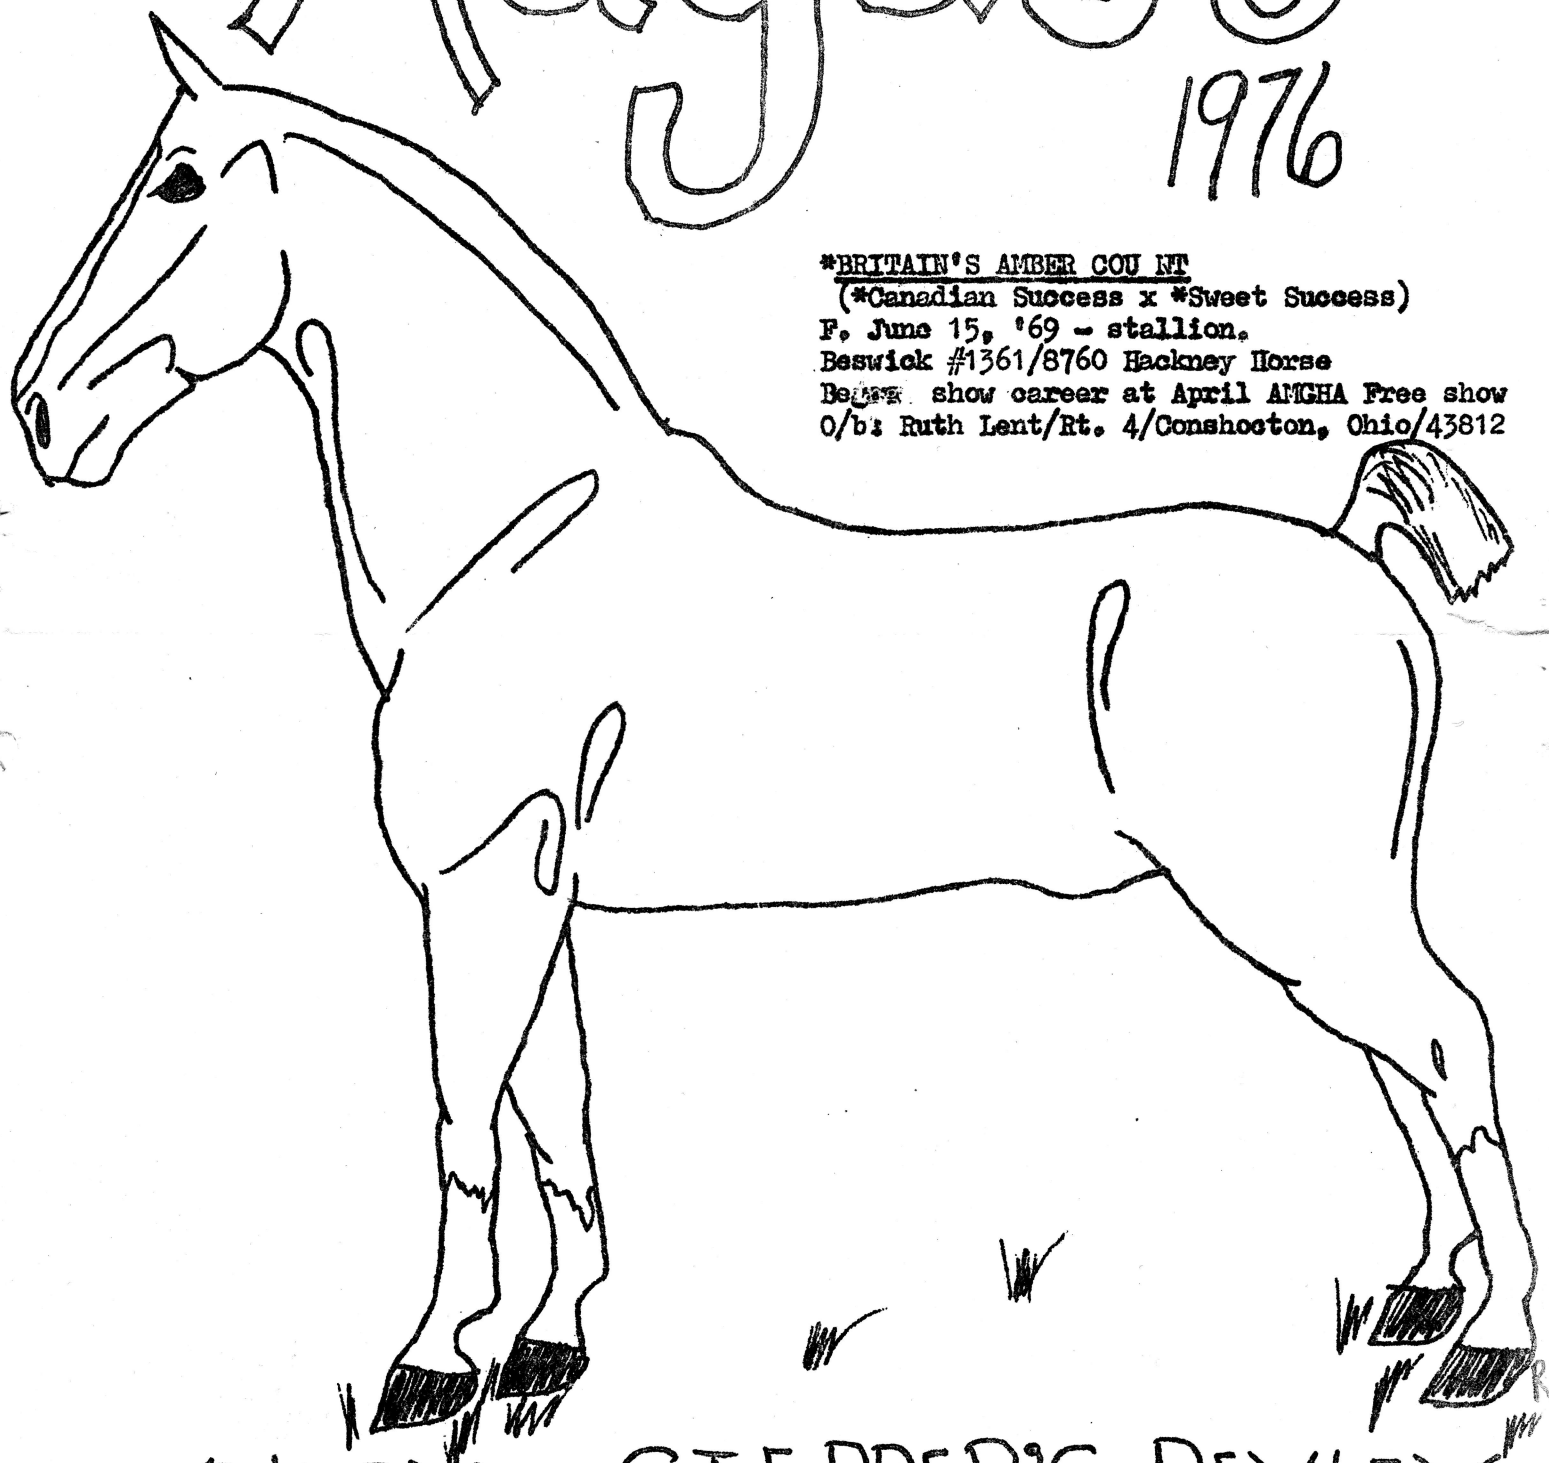 August
1976
*BRITAIN'S AMBER COU NT
(*Canadian Success x *Sweet Success)
F. June 15, '69 - stallion.
Beswick #1361/8760 Hackney Horse
show career at April AMGHA Free show
O/b: Ruth Lent/Rt. 4/Conshocton, Ohio/43812
STEPPER'S REVIEW